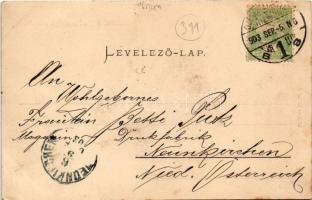 391
LEVELEZŐ-LAP.
903 SEP
1
An
Wohlgebornes
Fräulein Betti Putz
Druckfabrik
Neunkirchen
Nied. Österreich